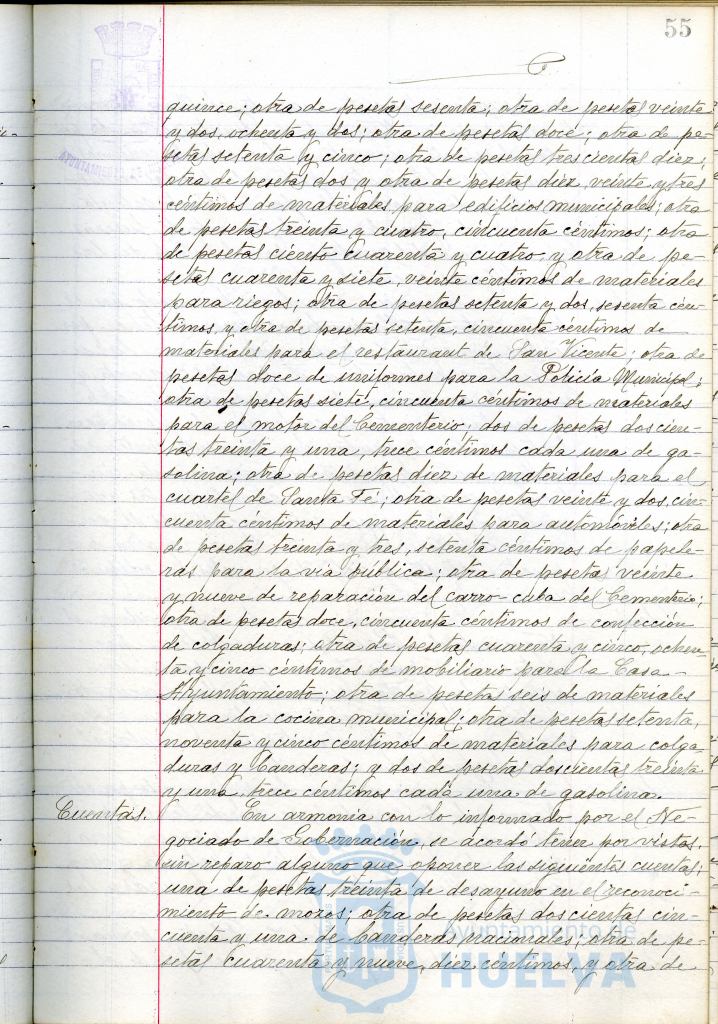 55
quince; otra de pesetas sesenta; otra de pesetas veinte
y dos, ochenta y dos; otra de pesetas doce; otra de pe-
setas setenta y cinco; otra de pesetas trescientas diez;
otra de pesetas dos y otra de pesetas diez, veinte y tres
céntimos de materiales para edificios municipales; otra
de pesetas treinta y cuatro, cincuenta céntimos; otra
de pesetas ciento cuarenta y cuatro, y otra de pe-
setas cuarenta y siete, veinte céntimos de materiales
para riegos; otra de pesetas setenta y dos, sesenta cén-
timos, y otra de pesetas setenta, cincuenta céntimos de
materiales para el restaurant de San Vicente; otra de
pesetas doce de uniformes para la Policía Municipal;
otra de pesetas siete, cincuenta céntimos de materiales
para el motor del Cementerio; dos de pesetas doscien-
tas treinta y una, trece céntimos cada una de ga-
solina; otra de pesetas diez de materiales para el
cuartel de Santa Fé; otra de pesetas veinte y dos, cin-
cuenta céntimos de materiales para automóviles; otra
de pesetas treinta y tres, setenta céntimos de papele-
ras para la vía pública; otra de pesetas veinte
y nueve de reparación del carro-cuba del Cementerio;
otra de pesetas doce, cincuenta céntimos de confección
de colgaduras; otra de pesetas cuarenta y cinco, ochen-
ta y cinco céntimos de mobiliario para la Casa-
Ayuntamiento; otra de peseta seis de materiales
para la cocina municipal; otra de pesetas setenta,
noventa y cinco céntimos de materiales para colga-
duras y banderas; y dos de pesetas doscientas treinta
y una, trece céntimos cada una de gasolina.
Cuentas. En armonía con lo informado por el Ne-
gociado de Gobernación, se acordó tener por vistas,
sin reparo alguno que oponer las siguientes cuentas;
una de pesetas treinta de desayuno en el reconoci-
miento de mozos; otra de pesetas doscientas cin-
cuenta y una de banderas nacionales; otra de pe-
setas cuarenta y nueve, diez céntimos, y otra de
Ayuntamiento de
HUELVA